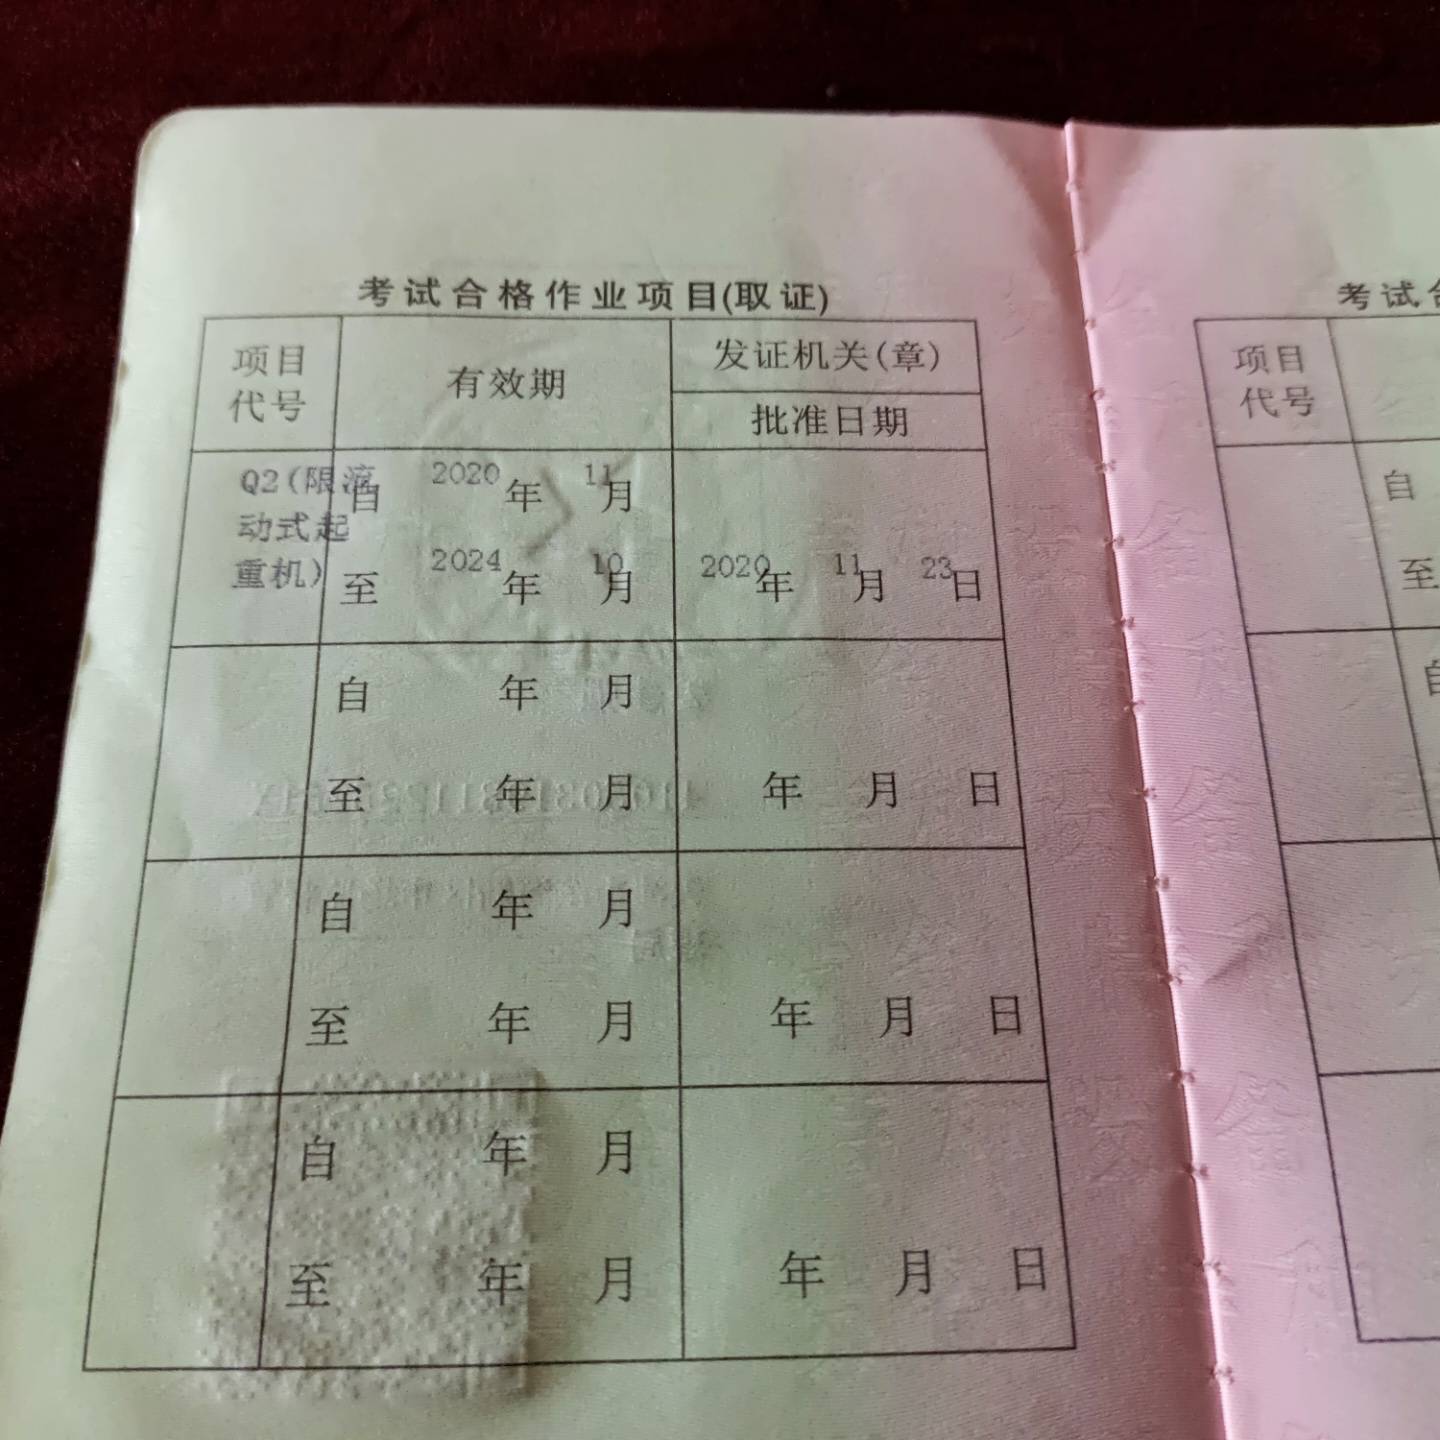 考试合格作业项目(取证)
项目代号
有效期
发证机关(章)
批准日期
Q2(限流动式起重机)
自 2020 年 11 月
至 2024 年 10 月
2020 年 11 月 23 日
自 年 月
至 年 月
年 月 日
自 年 月
至 年 月
年 月 日
自 年 月
至 年 月
年 月 日
考试
项目代号
自
至